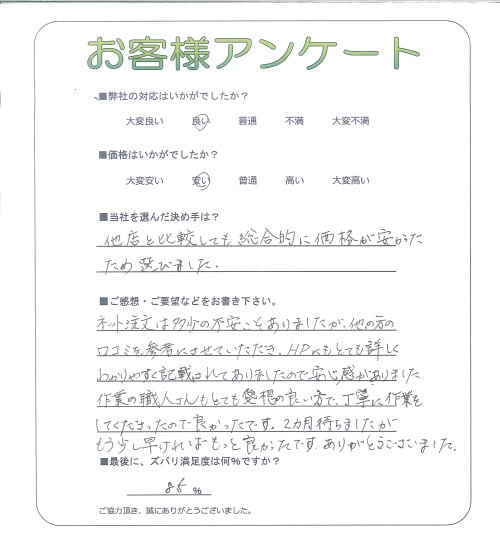 お客様アンケート
■弊社の対応はいかがでしたか？
大変良い 良い 普通 不満 大変不満
■価格はいかがでしたか？
大変安い 安い 普通 高い 大変高い
■当社を選んだ決め手は？
他店と比較しても総合的に価格が安かった
ため選びました.
■ご感想・ご要望などをお書き下さい。
ネット注文は多少の不安こそありましたが、他の方の
口コミを参考にさせていただき、HPにもとても詳しく
わかりやすく記載されてありましたので安心感がありました
作業の職人さんもとても愛想の良い方で、丁寧に作業を
してくださったので良かったです。2カ月待ちましたが
もう少し早ければもっと良かったです。ありがとうございました。
■最後に、ズバリ満足度は何%ですか？
85 %
ご協力頂き、誠にありがとうございました。